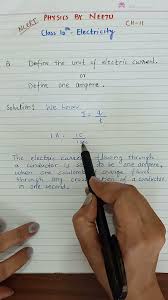 NCERT
PHYSICS BY NEETU
CH-11
Class 10th - Electricity
Q. Define the unit of electric current.
or
Define one ampere.
Solution: We know,
I = Q/t
1A = 1C
The electric current flowing through
a conductor is said to be one ampere,
when one coulomb charge flows
through any cross section of a conductor
in one second.